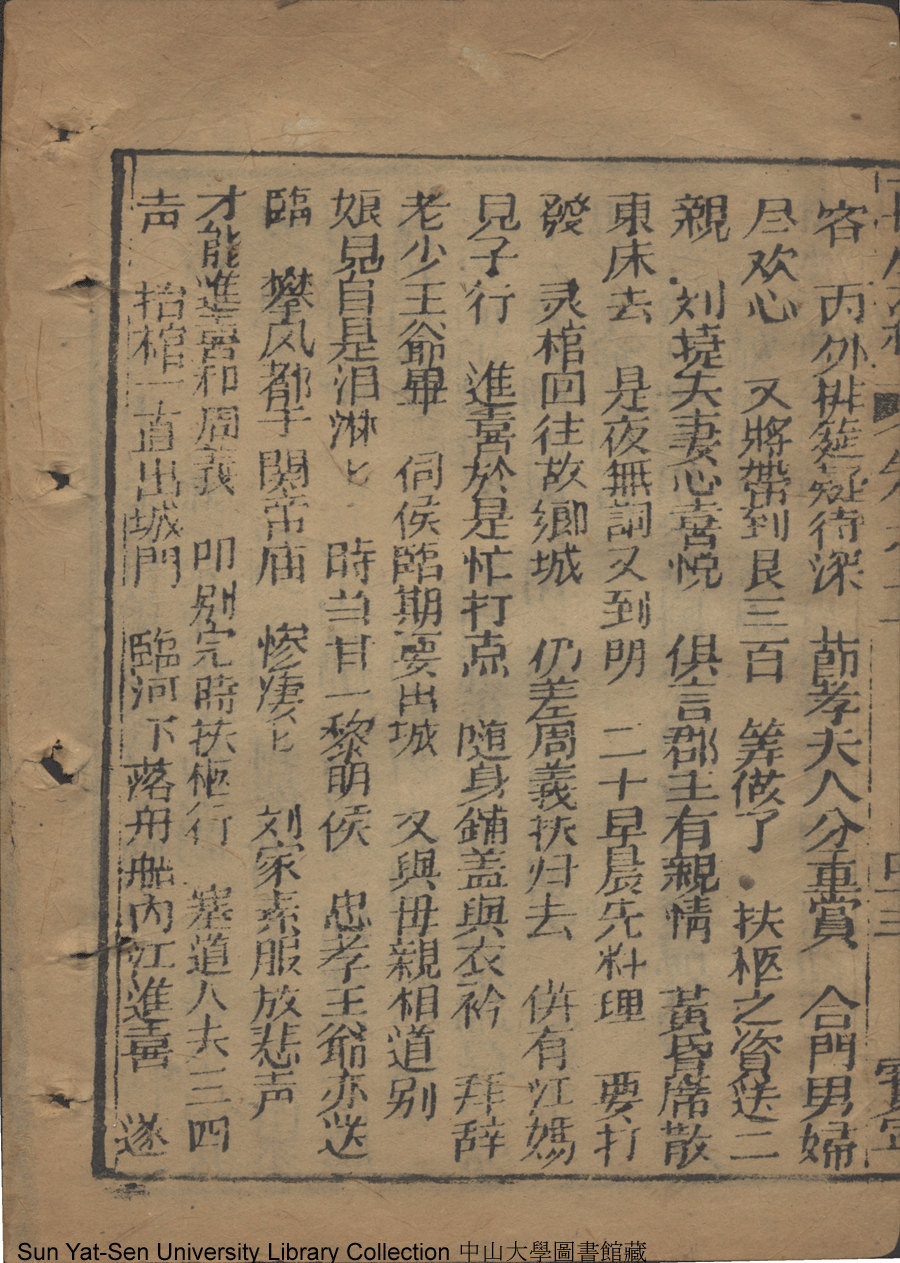 容 丙外排筵疑待深 莭孝夫人分重賞 合門男婦
尽欢心 又將帶到艮三百 筭做了 扶柩之資送二
親 刘撓夫妻心喜悅 俱言郡主有親情 黃昏席散
東床去 是夜無詞又到明 二十早晨先料理 要打
發 灵棺回往故鄉城 仍差周義扶归去 併有江媽
見子行 進喜於是忙打点 随身鋪盖與衣衿 拜辞
老少王爺畢 伺侯臨期要出城 又與母親相道别
娘見自是泪淋匕 時当廿一黎明侯 忠孝王爺亦送
臨 攀凤都于関帝庙 惨凄匕 刘家素服放悲声
才能進喜和周義 叩别完時扶柩行 塞道人夫三四
声 抬棺一直出城門 臨河下落舟船内江進喜 遂
Sun Yat-Sen University Library Collection 中山大學圖書館藏